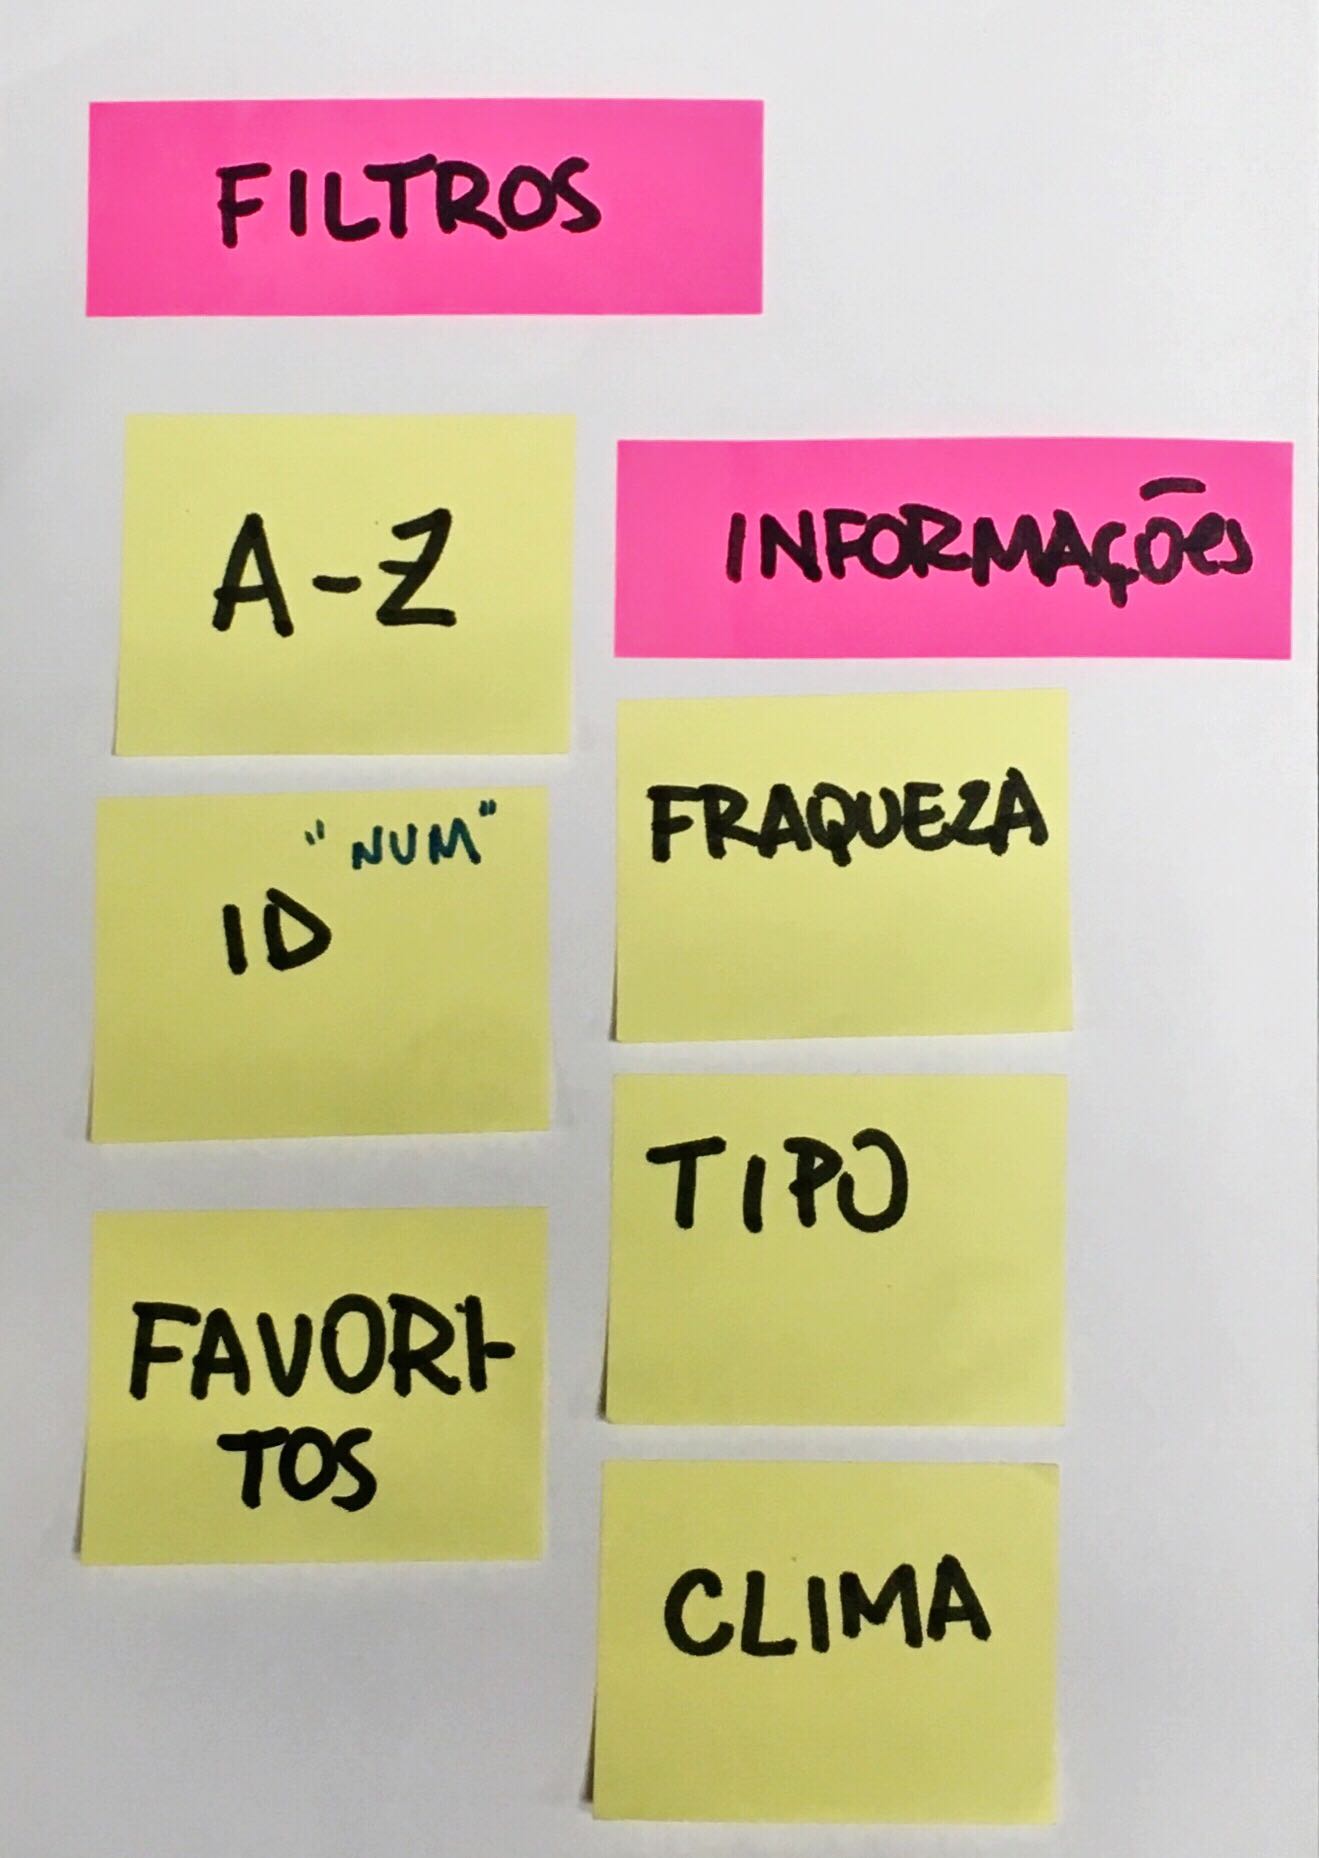 FILTROS
A-Z
"NUM"
ID
FAVORI-
TOS
INFORMAÇÕES
FRAQUEZA
TIPO
CLIMA